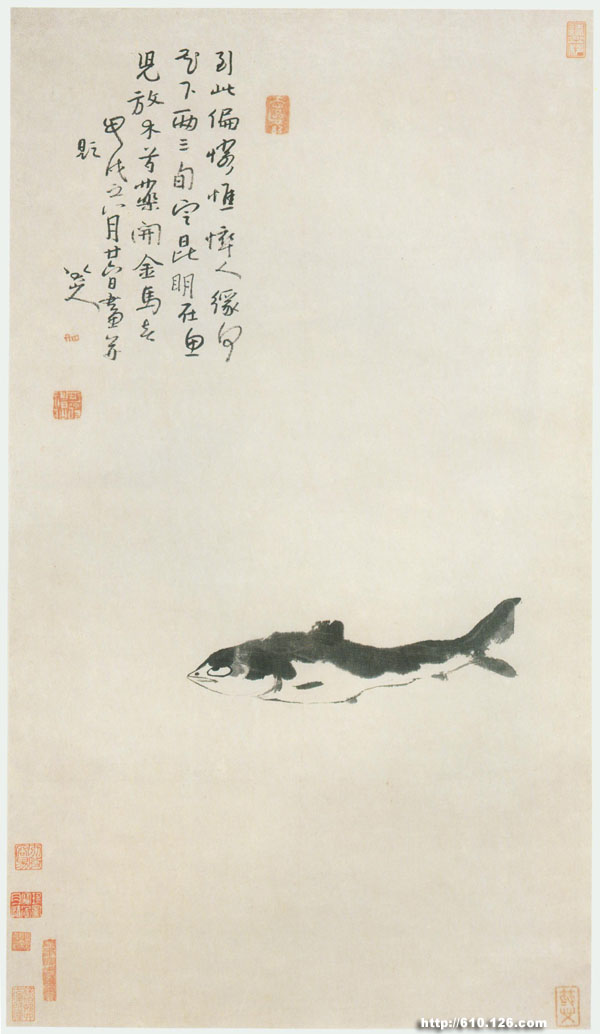 到此偏憐憔悴人緣何
花下兩三旬定昆明在魚
兒放木芍藥開金馬春
甲戌之八月廿六日畫并
題
八大山人
http://610.126.com